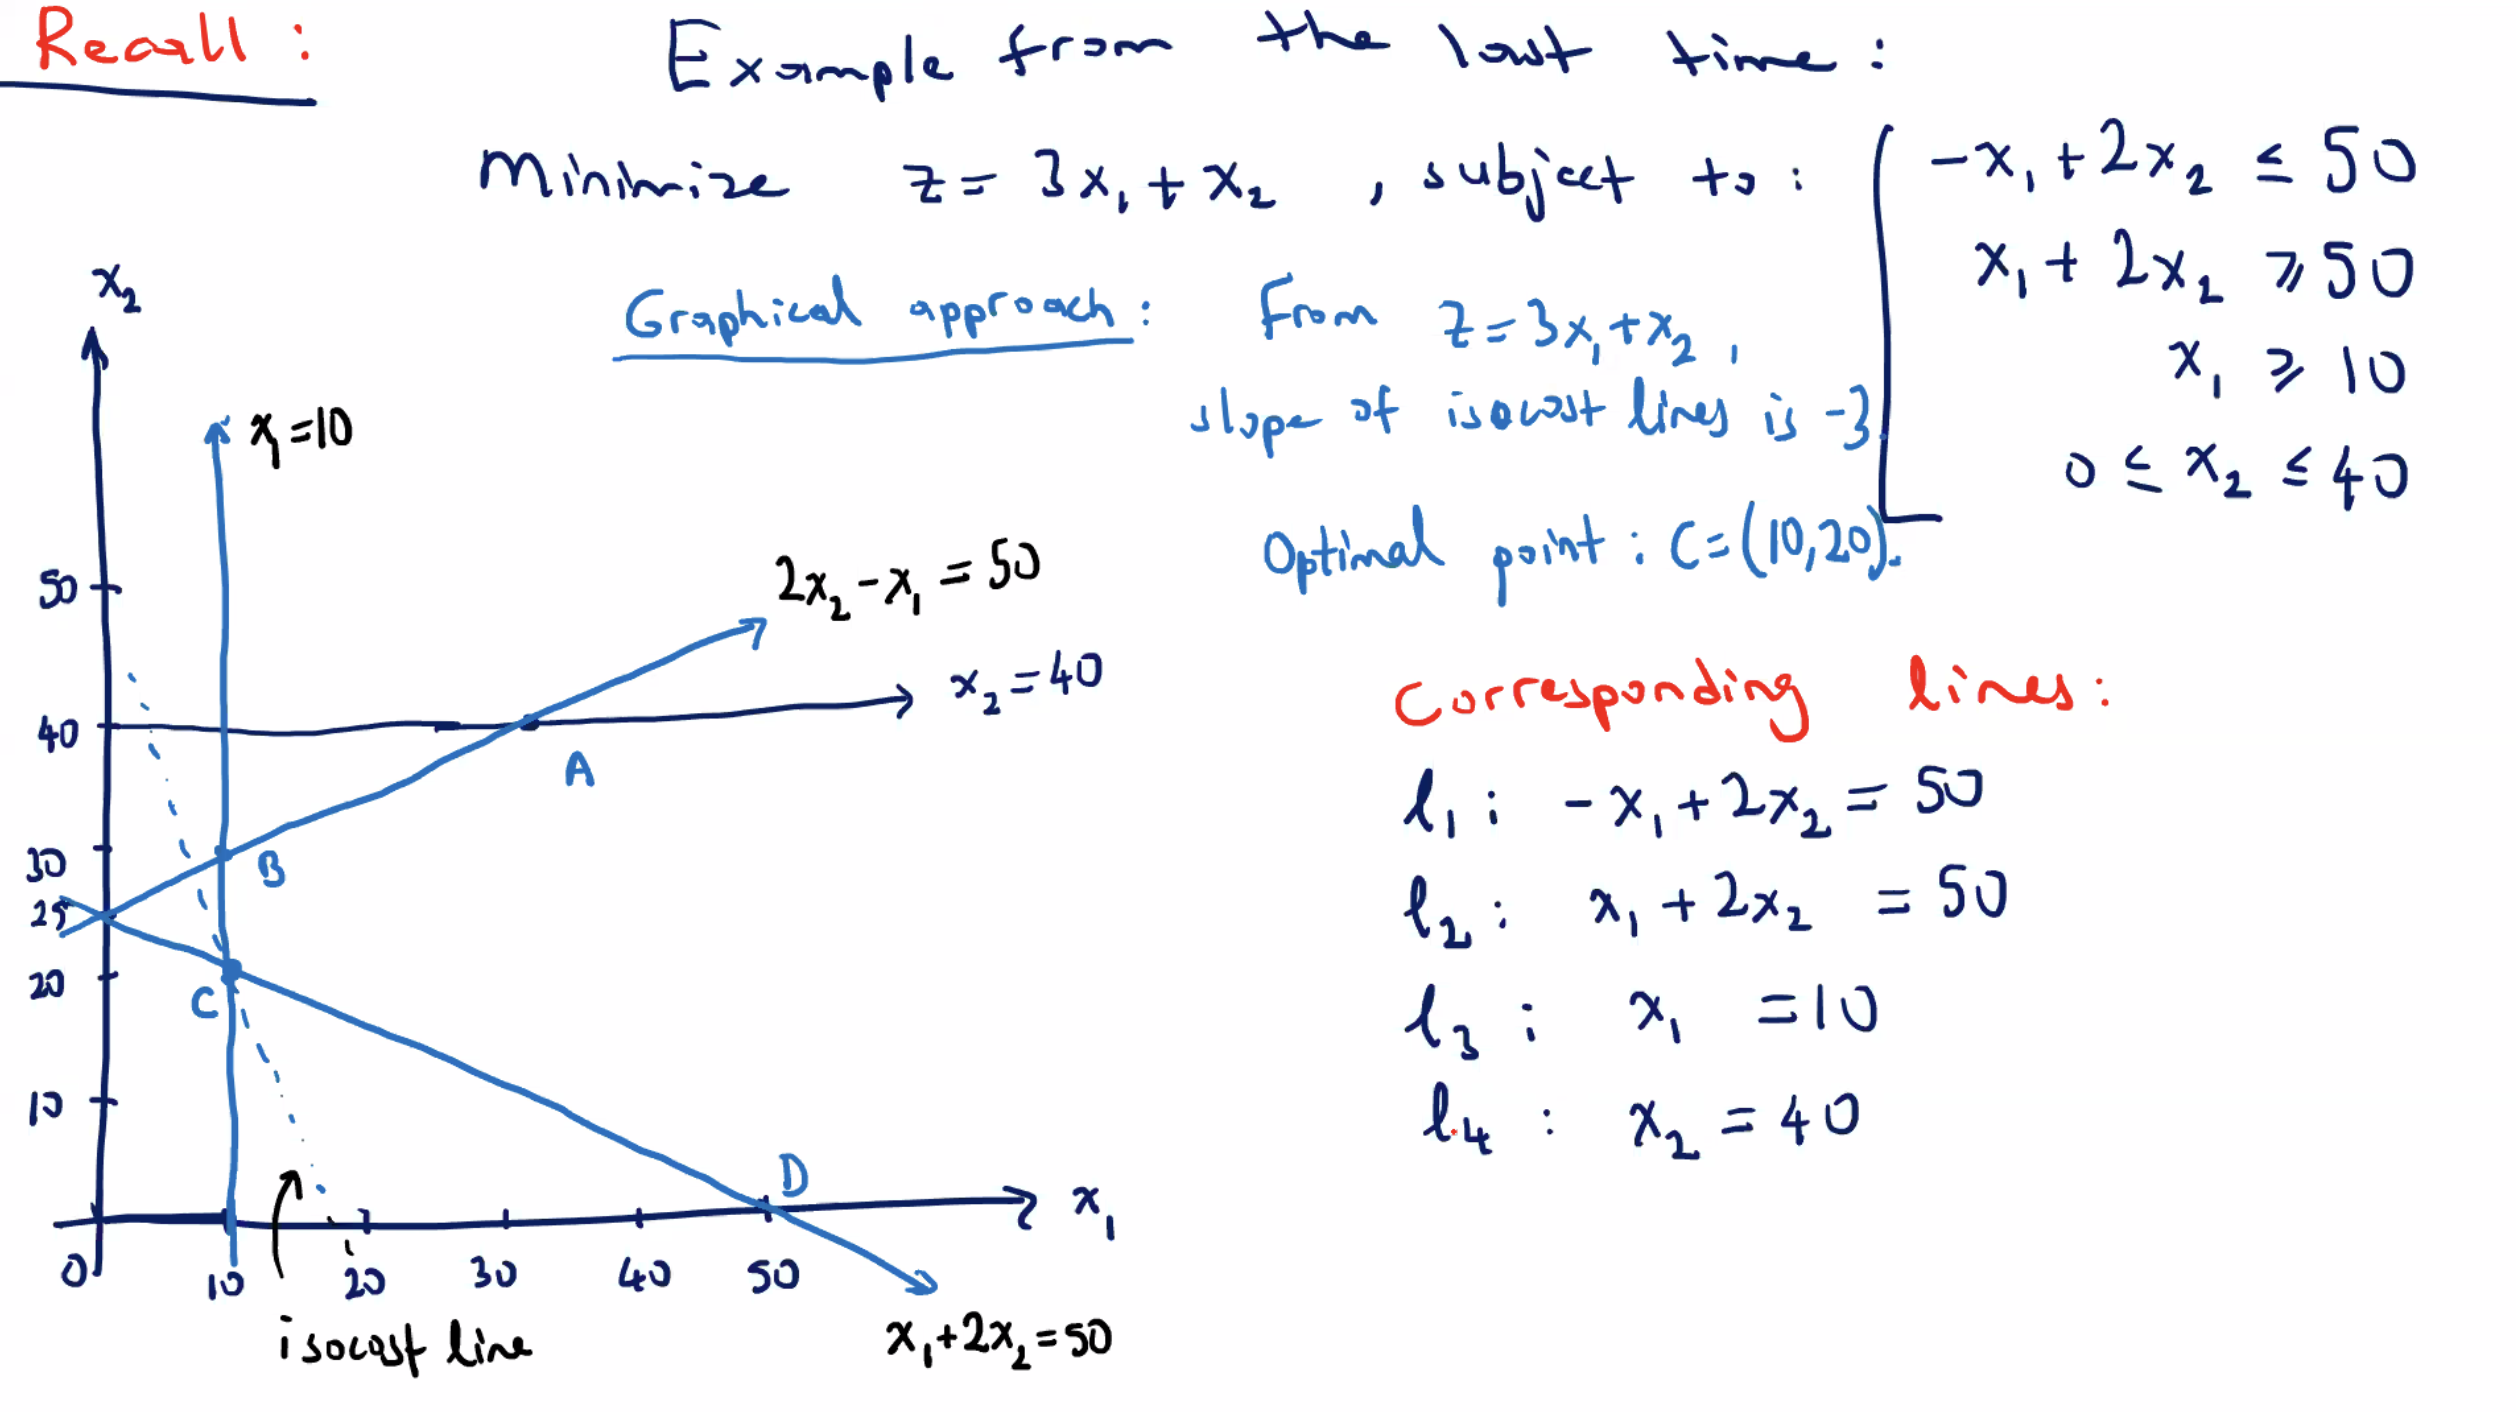 Recall :
Example from the last time :
Minimize z = 3x₁ + x₂ , subject to :
-x₁ + 2x₂ ≤ 50
x₁ + 2x₂ ≥ 50
x₁ ≥ 10
0 ≤ x₂ ≤ 40
Graphical approach : From z = 3x₁ + x₂ ,
slope of isocost lines is -3.
Optimal point : C = (10,20).
x₂
x₁ = 10
2x₂ - x₁ = 50
x₂ = 40
50
40
30
25
20
10
0
A
B
C
D
x₁
10 20 30 40 50
isocost line
x₁ + 2x₂ = 50
Corresponding lines :
l₁ : -x₁ + 2x₂ = 50
l₂ : x₁ + 2x₂ = 50
l₃ : x₁ = 10
l₄ : x₂ = 40